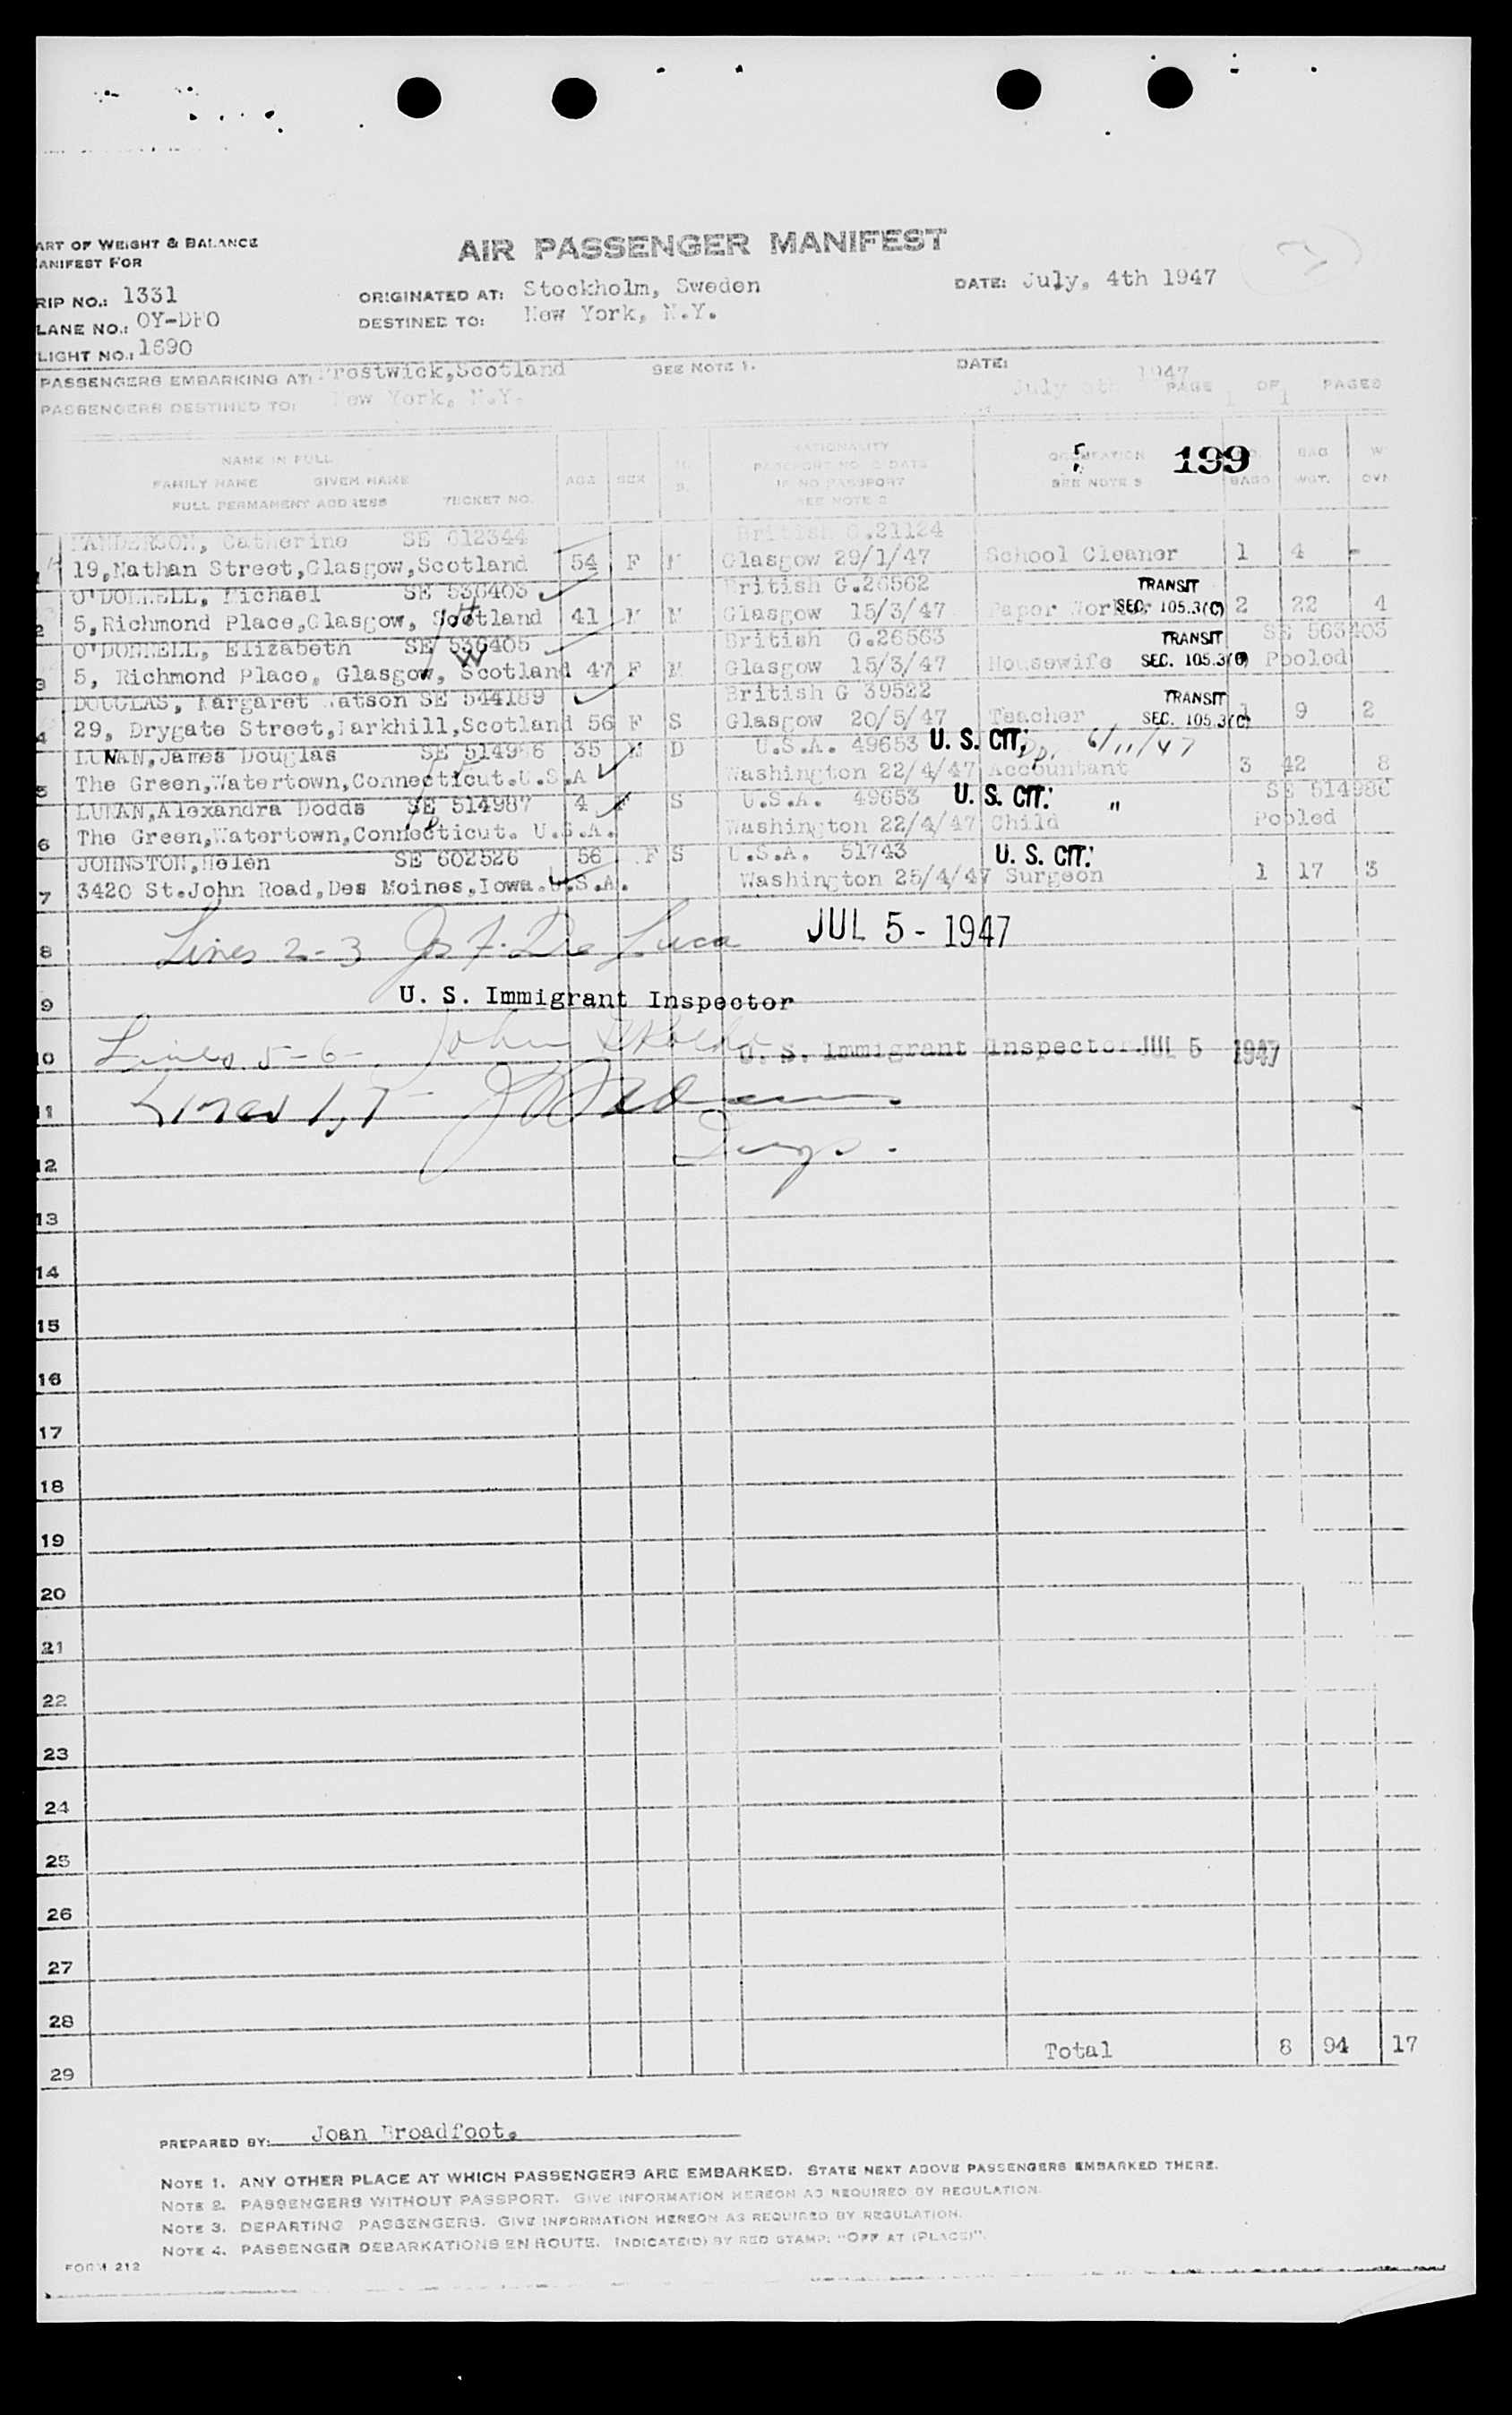 ART OF WEIGHT & BALANCE
ANIFEST FOR
AIR PASSENGER MANIFEST
RIP NO.: 1331
ORIGINATED AT: Stockholm, Sweden
DATE: July, 4th 1947
LANE NO.: OY-DFO
DESTINED TO: New York, N.Y.
LIGHT NO.: 1690
PASSENGERS EMBARKING AT: Prestwick,Scotland SEE NOTE 1. DATE: July 1947
PASSENGERS DESTINED TO: New York, N.Y. PAGE 1 OF 1 PAGES
NAME IN FULL
FAMILY NAME GIVEN NAME
FULL PERMANENT ADDRESS TICKET NO.
AGE SEX
NATIONALITY
PASSPORT NO. & DATE
IF NO PASSPORT
SEE NOTE 2
OCCUPATION
SEE NOTE 3
199
BAGS
BAG
WGT.
Catherine SE 612344 British G.21124
1 19,Nathan Street,Glasgow,Scotland 54 F M Glasgow 29/1/47 School Cleaner 1 4 -
O'DONNELL, Michael SE 536403 British G.26562 TRANSIT
2 5,Richmond Place,Glasgow, Scotland 41 M M Glasgow 15/3/47 Paper Worker SEC. 105.3(C) 2 22 4
O'DONNELL, Elizabeth SE 536405 British G.26563 TRANSIT SE 563403
3 5, Richmond Place, Glasgow, Scotland 47 F M Glasgow 15/3/47 Housewife SEC. 105.3(C) Pooled
DOUGLAS, Margaret Watson SE 544189 British G 39522 TRANSIT
4 29, Drygate Street,Larkhill,Scotland 56 F S Glasgow 20/5/47 Teacher SEC. 105.3(C) 1 9 2
LUNAN,James Douglas SE 514986 35 M D U.S.A. 49653 U. S. CIT. 6/11/47
5 The Green,Watertown,Connecticut.U.S.A Washington 22/4/47 Accountant 3 42 8
LUNAN,Alexandra Dodds SE 514987 4 F S U.S.A. 49653 U. S. CIT. " SE 514986
6 The Green,Watertown,Connecticut. U.S.A. Washington 22/4/47 Child Pooled
JOHNSTON,Helen SE 602526 56 F S U.S.A. 51743 U. S. CIT.
7 3420 St.John Road,Des Moines,Iowa.U.S.A. Washington 25/4/47 Surgeon 1 17 3
8 Lines 2-3 Jos F. De Luca JUL 5 - 1947
9 U. S. Immigrant Inspector
10 Lines 5-6- John U. S. Immigrant Inspector JUL 5 1947
11 Lines 1,7 -
12 Insp.
13
14
15
16
17
18
19
20
21
22
23
24
25
26
27
28
29 Total 8 94 17
PREPARED BY: Joan Broadfoot.
NOTE 1. ANY OTHER PLACE AT WHICH PASSENGERS ARE EMBARKED. STATE NEXT ABOVE PASSENGERS EMBARKED THERE.
NOTE 2. PASSENGERS WITHOUT PASSPORT. GIVE INFORMATION HEREON AS REQUIRED BY REGULATION.
NOTE 3. DEPARTING PASSENGERS. GIVE INFORMATION HEREON AS REQUIRED BY REGULATION.
NOTE 4. PASSENGER DEBARKATIONS EN ROUTE. INDICATE(D) BY RED STAMP: "OFF AT (PLACE)".
FORM 212